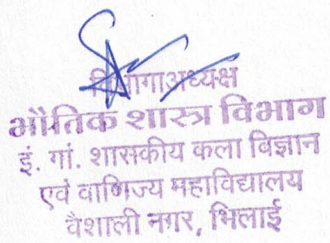 विभागाध्यक्ष
भौतिक शास्त्र विभाग
इं. गां. शासकीय कला विज्ञान
एवं वाणिज्य महाविद्यालय
वैशाली नगर, भिलाई